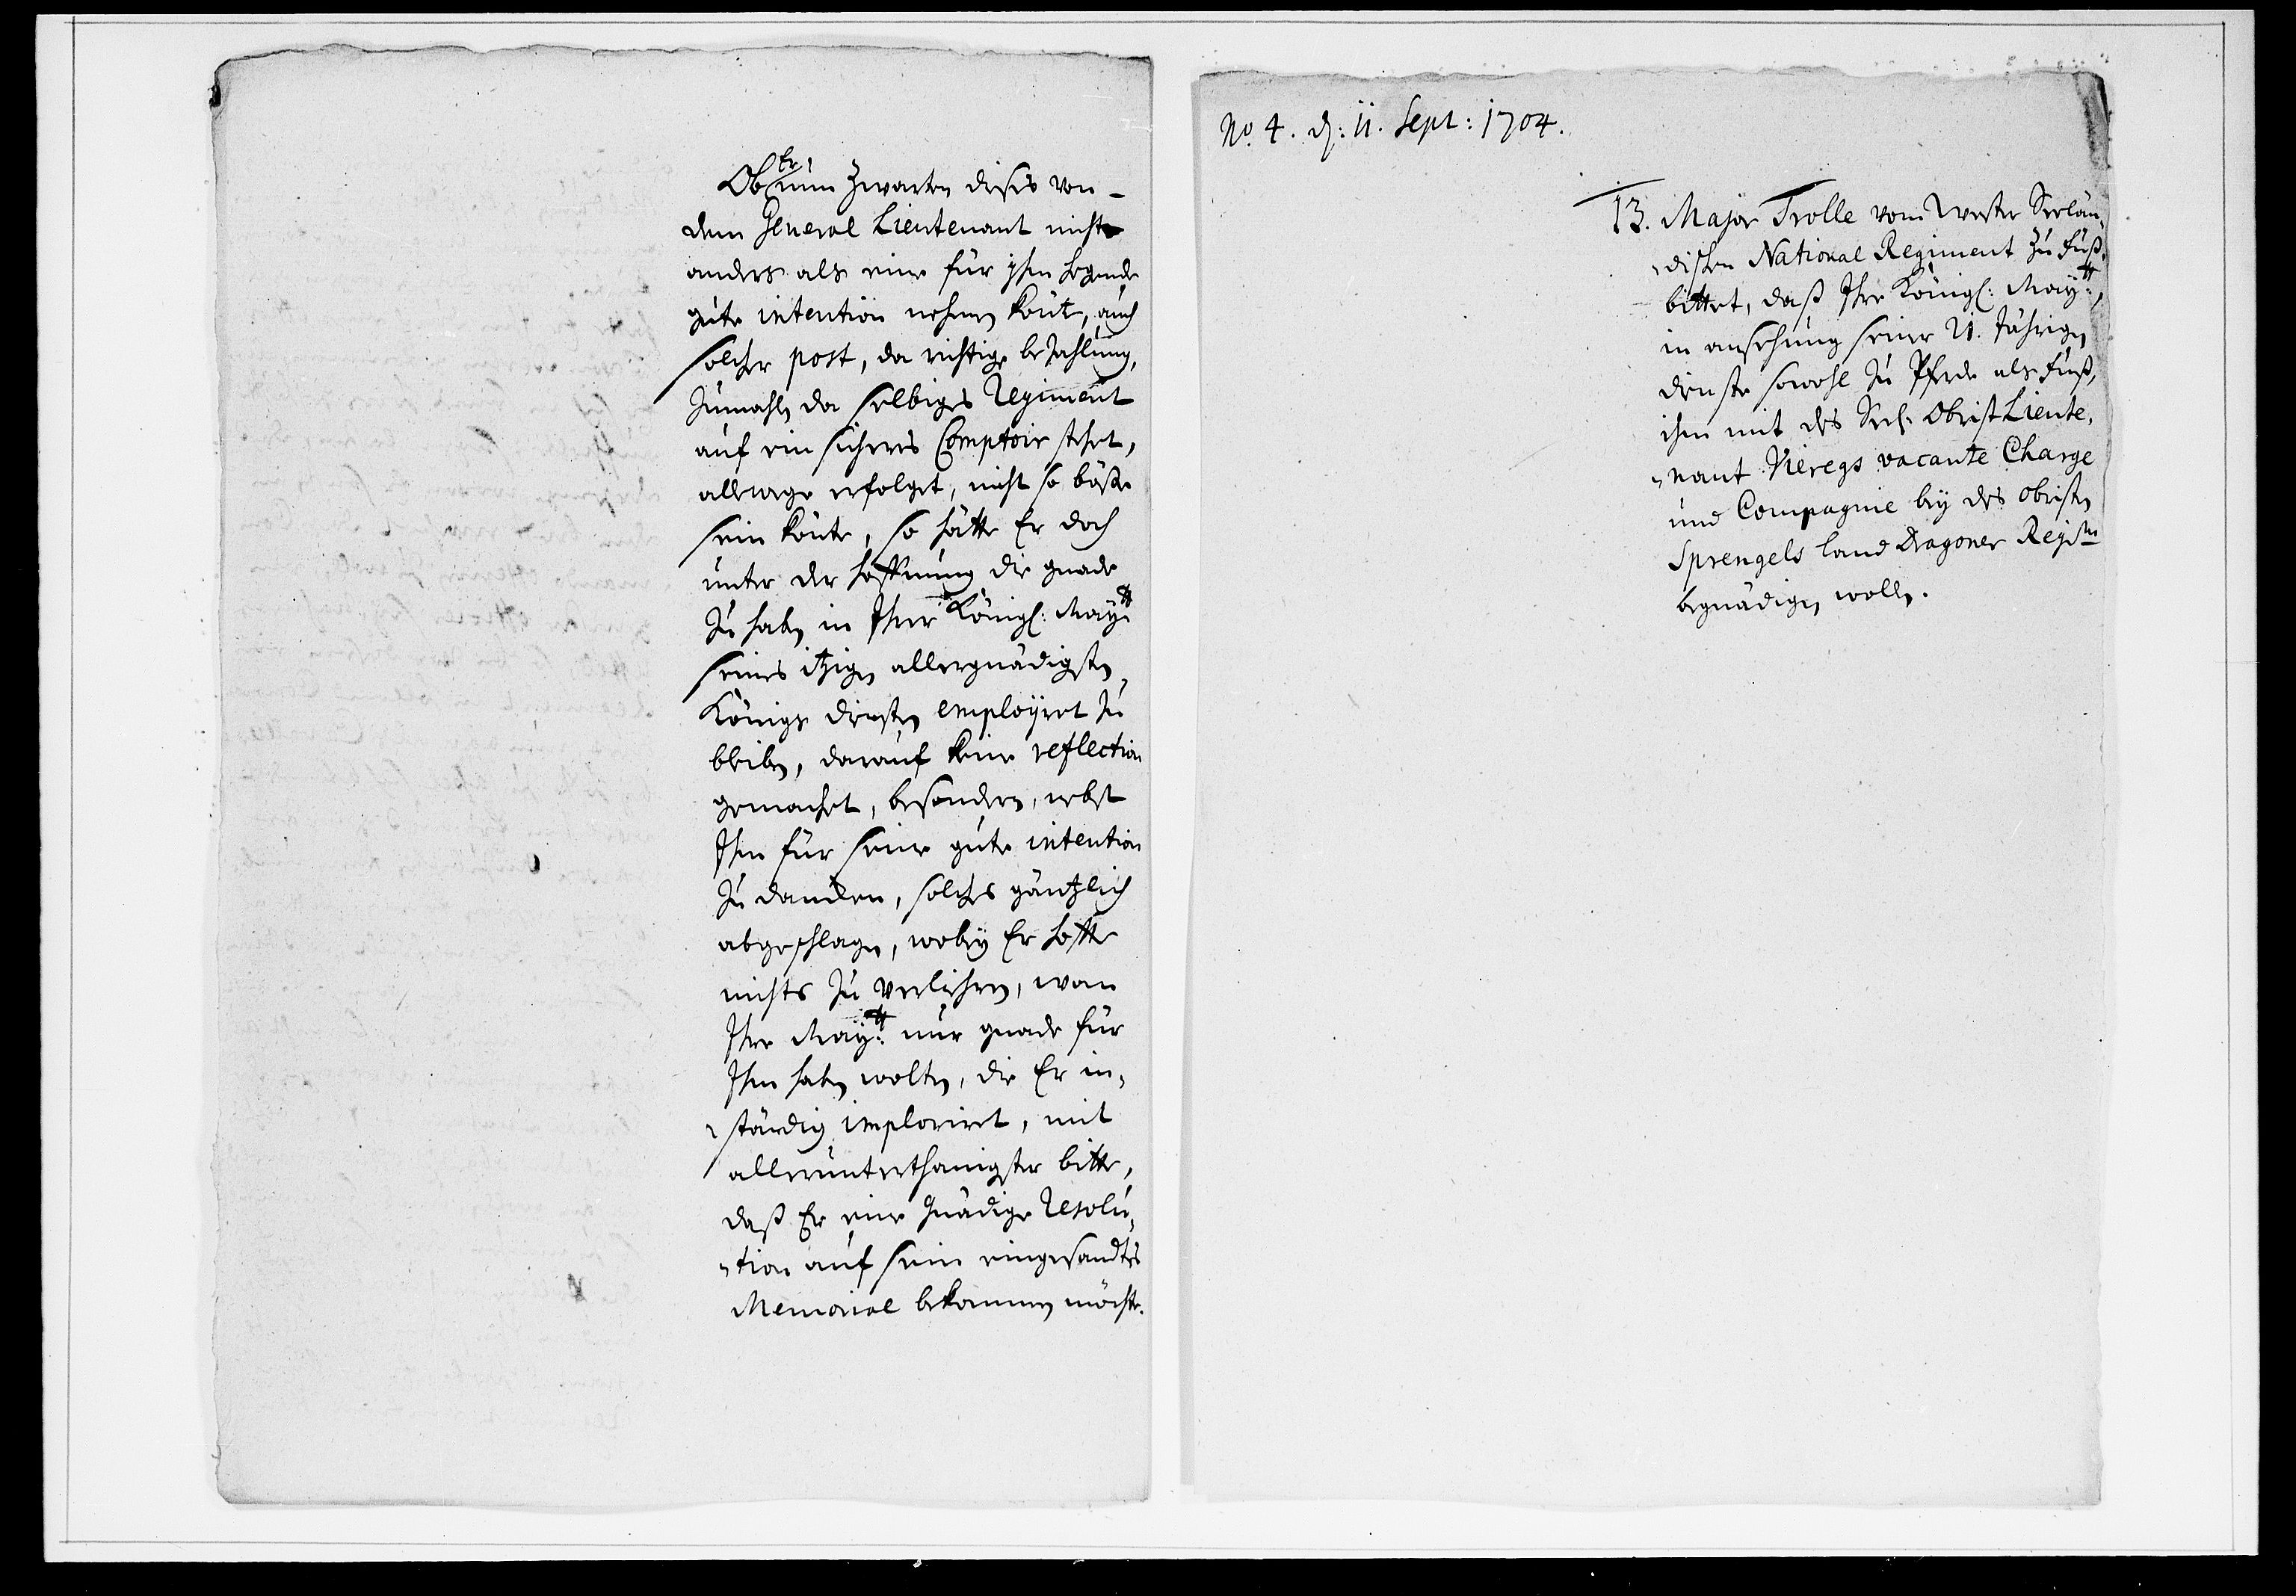 Ob Er nun zwarten dieses von
dem General Lieutenant nicht
anders als eine für ihm hegende
gute intention nehmen könte, auch
solcher post, da richtige bezahlung,
zumahlen da selbiges Regiment
auf ein sicheres Comptoir stehet,
allewege erfolget, nicht so böße
sein könte, so hätte Er doch
unter der hoffnung die gnade
zu haben in Ihre Königl: Maytt:
seines itzigen allergnädigsten
Königs diensten employret zu
bleiben, darauf keine reflection
gemachet, besondern, nebst
Ihm für seine gute intention
zu dancken, solches gäntzlich
abgeschlagen, wobey Er hoffte
nichts zu verliehren, wan
Ihre Maytt: nur gnade für
Ihm haben wolten, die Er in-
ständig imploriret, mit
allerunterthänigster bitte,
daß Er eine gnädige Resolu-
tion auf sein eingesandtes
Memorial bekommen möchte.
No. 4. d: 11. Sept: 1704.
13. Major Trolle vom Wester Seelän-
dischen National Regiment zu Fuß
bittet, daß Ihre Königl: Maytt:,
in ansehung seiner 21. Jährigen
dienste sowohl zu Pferde als Fuß,
ihm mit des Seel. Obrist Lieute-
nant Vieregs vacante Charge
und Compagnie bey des Obristen
Sprengels land Dragoner Regim
begnädigen wollen.